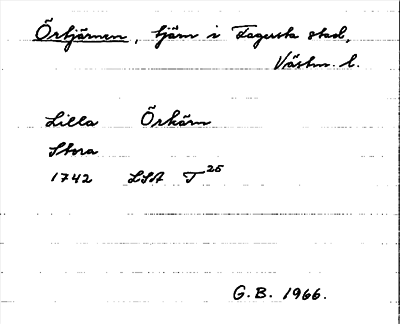 Örtjärnen, tjärn i Fagersta stad,
Västm. l.
Lilla Örkärn
Stora
1742 LSA T 25
G.B. 1966.